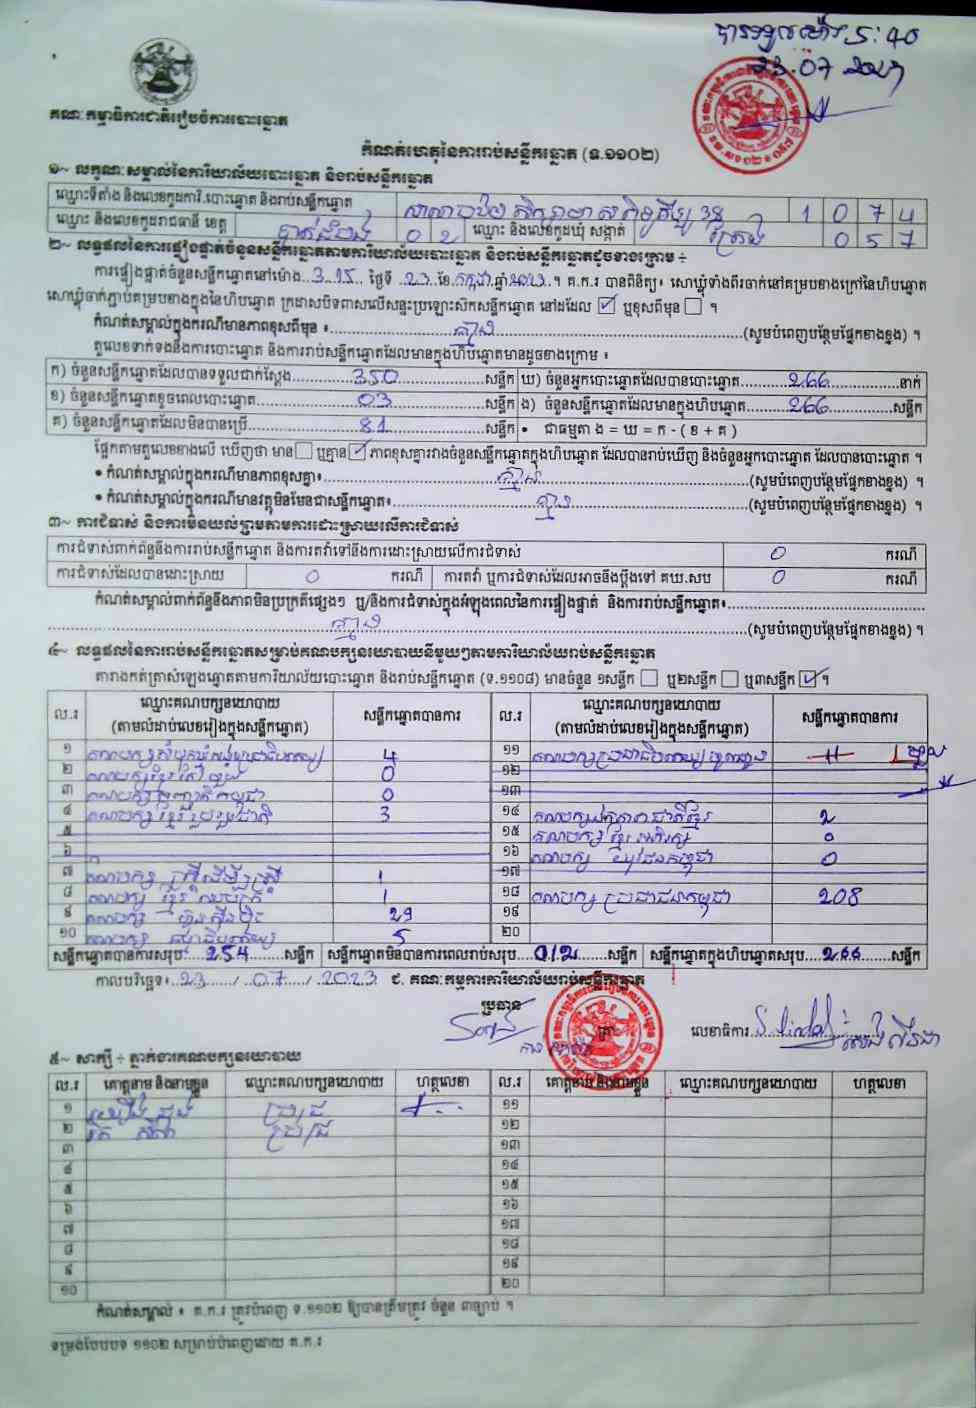 5:40
23.07.2023
គណៈកម្មាធិការជាតិរៀបចំការបោះឆ្នោត
កំណត់ហេតុនៃការរាប់សន្លឹកឆ្នោត (ទ.១១០២)
១~ លក្ខណៈសម្គាល់នៃការិយាល័យបោះឆ្នោត និងរាប់សន្លឹកឆ្នោត
ឈ្មោះទីតាំង និងលេខកូដការិ.បោះឆ្នោត និងរាប់សន្លឹកឆ្នោត 1 0 7 4
ឈ្មោះ និងលេខកូដរាជធានី ខេត្ត បាត់ដំបង 0 2 ឈ្មោះ និងលេខកូដឃុំ សង្កាត់ ត្រែង 0 5 7
២~ លទ្ធផលនៃការផ្ទៀងផ្ទាត់ចំនួនសន្លឹកឆ្នោតតាមការិយាល័យបោះឆ្នោត និងរាប់សន្លឹកឆ្នោតដូចខាងក្រោម ÷
ការផ្ទៀងផ្ទាត់ចំនួនសន្លឹកឆ្នោតនៅម៉ោង 3.15 ថ្ងៃទី 23 ខែ កក្កដា ឆ្នាំ 2023 ។ គ.ក.រ បានពិនិត្យ៖ សោឃ្លុំទាំងពីរចាក់នៅគម្របខាងក្រៅនៃហិបឆ្នោត
សោឃ្លុំចាក់ភ្ជាប់គម្របខាងក្នុងនៃហិបឆ្នោត ក្រដាសបិទពាសលើសន្ទះប្រឡោះស៊កសន្លឹកឆ្នោត នៅដដែល ☑ ឬខុសពីមុន ☐ ។
កំណត់សម្គាល់ក្នុងករណីមានភាពខុសពីមុន ៖ គ្មាន (សូមបំពេញបន្ថែមផ្នែកខាងខ្នង) ។
តួលេខទាក់ទងនឹងការបោះឆ្នោត និងការរាប់សន្លឹកឆ្នោតដែលមានក្នុងហិបឆ្នោតមានដូចខាងក្រោម ៖
ក) ចំនួនសន្លឹកឆ្នោតដែលបានទទួលជាក់ស្តែង 350 សន្លឹក ឃ) ចំនួនអ្នកបោះឆ្នោតដែលបានបោះឆ្នោត 266 នាក់
ខ) ចំនួនសន្លឹកឆ្នោតខូចពេលបោះឆ្នោត 03 សន្លឹក ង) ចំនួនសន្លឹកឆ្នោតដែលមានក្នុងហិបឆ្នោត 266 សន្លឹក
គ) ចំនួនសន្លឹកឆ្នោតដែលមិនបានប្រើ 81 សន្លឹក • ជាធម្មតា ង = ឃ = ក - ( ខ + គ )
ផ្អែកតាមតួលេខខាងលើ ឃើញថា មាន ☐ ឬគ្មាន ☑ ភាពខុសគ្នារវាងចំនួនសន្លឹកឆ្នោតក្នុងហិបឆ្នោត ដែលបានរាប់ឃើញ និងចំនួនអ្នកបោះឆ្នោត ដែលបានបោះឆ្នោត ។
• កំណត់សម្គាល់ក្នុងករណីមានភាពខុសគ្នា៖ គ្មាន (សូមបំពេញបន្ថែមផ្នែកខាងខ្នង) ។
• កំណត់សម្គាល់ក្នុងករណីមានវត្ថុមិនមែនជាសន្លឹកឆ្នោត៖ គ្មាន (សូមបំពេញបន្ថែមផ្នែកខាងខ្នង) ។
៣~ ការជំទាស់ និងការមិនយល់ព្រមតាមការដោះស្រាយលើការជំទាស់
ការជំទាស់ពាក់ព័ន្ធនឹងការរាប់សន្លឹកឆ្នោត និងការតវ៉ាទៅនឹងការដោះស្រាយលើការជំទាស់ 0 ករណី
ការជំទាស់ដែលបានដោះស្រាយ 0 ករណី ការតវ៉ា ឬការជំទាស់ដែលអាចនឹងប្តឹងទៅ គឃ.សប 0 ករណី
កំណត់សម្គាល់ពាក់ព័ន្ធនឹងភាពមិនប្រក្រតីផ្សេងៗ ឬ/និងការជំទាស់ក្នុងអំឡុងពេលនៃការផ្ទៀងផ្ទាត់ និងការរាប់សន្លឹកឆ្នោត៖
គ្មាន (សូមបំពេញបន្ថែមផ្នែកខាងខ្នង) ។
៤~ លទ្ធផលនៃការរាប់សន្លឹកឆ្នោតសម្រាប់គណបក្សនយោបាយនីមួយៗតាមការិយាល័យរាប់សន្លឹកឆ្នោត
តារាងកត់ត្រាសំឡេងឆ្នោតតាមការិយាល័យបោះឆ្នោត និងរាប់សន្លឹកឆ្នោត (ទ.១១០៨) មានចំនួន ១សន្លឹក ☐ ឬ២សន្លឹក ☐ ឬ៣សន្លឹក ☑ ។
ល.រ ឈ្មោះគណបក្សនយោបាយ (តាមលំដាប់លេខរៀងក្នុងសន្លឹកឆ្នោត) សន្លឹកឆ្នោតបានការ ល.រ ឈ្មោះគណបក្សនយោបាយ (តាមលំដាប់លេខរៀងក្នុងសន្លឹកឆ្នោត) សន្លឹកឆ្នោតបានការ
១ 4 ១១ 1
២ 0 ១២
៣ 0 ១៣
៤ គណបក្ស ខ្មែររួបរួមជាតិ 3 ១៤ 2
៥ ១៥ គណបក្ស ខ្មែរ 0
៦ ១៦ គណបក្ស យុវជនកម្ពុជា 0
៧ គណបក្ស ស្ត្រីដើម្បីស្ត្រី 1 ១៧
៨ គណបក្ស ខ្មែរ 1 ១៨ គណបក្ស ប្រជាជនកម្ពុជា 208
៩ គណបក្ស ហ៊្វុនស៊ិនប៉ិច 29 ១៩
១០ គណបក្ស 5 ២០
សន្លឹកឆ្នោតបានការសរុប 254 សន្លឹក សន្លឹកឆ្នោតមិនបានការពេលរាប់សរុប 012 សន្លឹក សន្លឹកឆ្នោតក្នុងហិបឆ្នោតសរុប 266 សន្លឹក
កាលបរិច្ឆេទ៖ 23 / 07 / 2023 ជ. គណៈកម្មការការិយាល័យរាប់សន្លឹកឆ្នោត
ប្រធាន
លេខាធិការ
៥~ សាក្សី ÷ ភ្នាក់ងារគណបក្សនយោបាយ
ល.រ គោត្តនាម និងនាមខ្លួន ឈ្មោះគណបក្សនយោបាយ ហត្ថលេខា ល.រ គោត្តនាម និងនាមខ្លួន ឈ្មោះគណបក្សនយោបាយ ហត្ថលេខា
១ ១១
២ ១២
៣ ១៣
៤ ១៤
៥ ១៥
៦ ១៦
៧ ១៧
៨ ១៨
៩ ១៩
១០ ២០
កំណត់សម្គាល់ ៖ គ.ក.រ ត្រូវបំពេញ ទ.១១០២ ឱ្យបានត្រឹមត្រូវ ចំនួន ៣ច្បាប់ ។
ទម្រង់បែបបទ ១១០២ សម្រាប់បំពេញដោយ គ.ក.រ